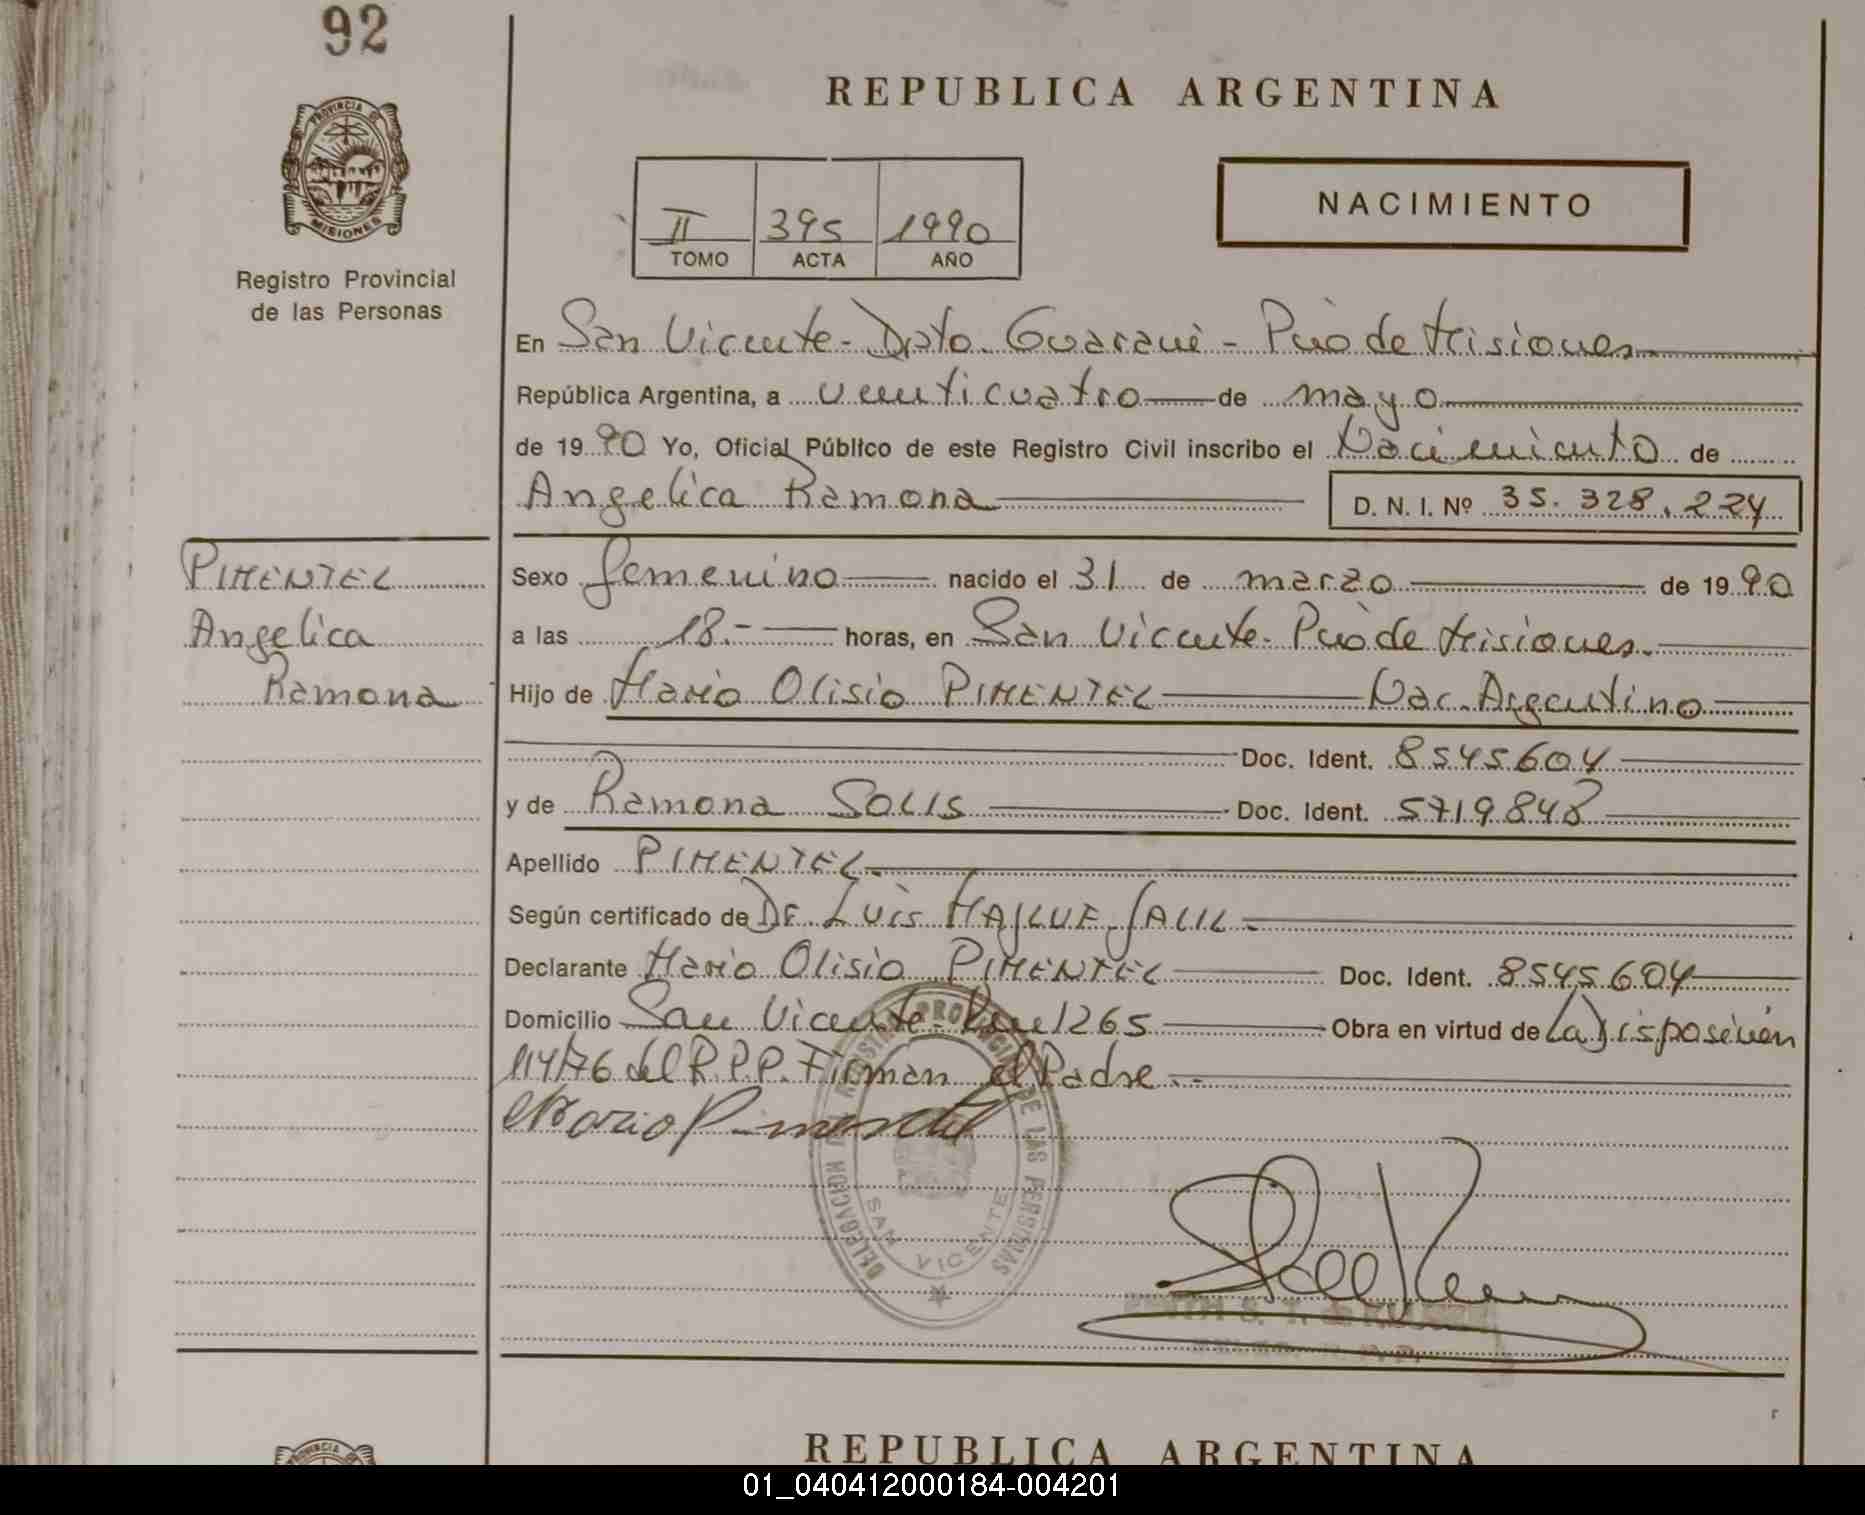 92
REPUBLICA ARGENTINA
PROVINCIA DE
MISIONES
Registro Provincial
de las Personas
II 395 1990
TOMO ACTA AÑO
NACIMIENTO
En San Vicente - Dpto. Guaraní - Pcio de Misiones
República Argentina, a veinticuatro de mayo
de 1990 Yo, Oficial Público de este Registro Civil inscribo el Nacimiento de
Angelica Ramona D. N. I. Nº 35.328.224
PIMENTEL
Angelica
Ramona
Sexo femenino nacido el 31 de marzo de 1990
a las 18.- horas, en San Vicente - Pcio de Misiones.
Hijo de Mario Olisio PIMENTEL Nac. Argentino
Doc. Ident. 8545604
y de Ramona SOLIS Doc. Ident. 5719848
Apellido PIMENTEL.
Según certificado de Dr. Luis JALIL.
Declarante Mario Olisio PIMENTEL Doc. Ident. 8545604
Domicilio San Vicente - 1265 Obra en virtud de la Disposición
114/76 del R.P.P. Firman el Padre.-
Mario Pimentel
DELEGACION REGISTRO PROVINCIAL DE LAS PERSONAS
SAN VICENTE
REPUBLICA ARGENTINA
01_040412000184-004201